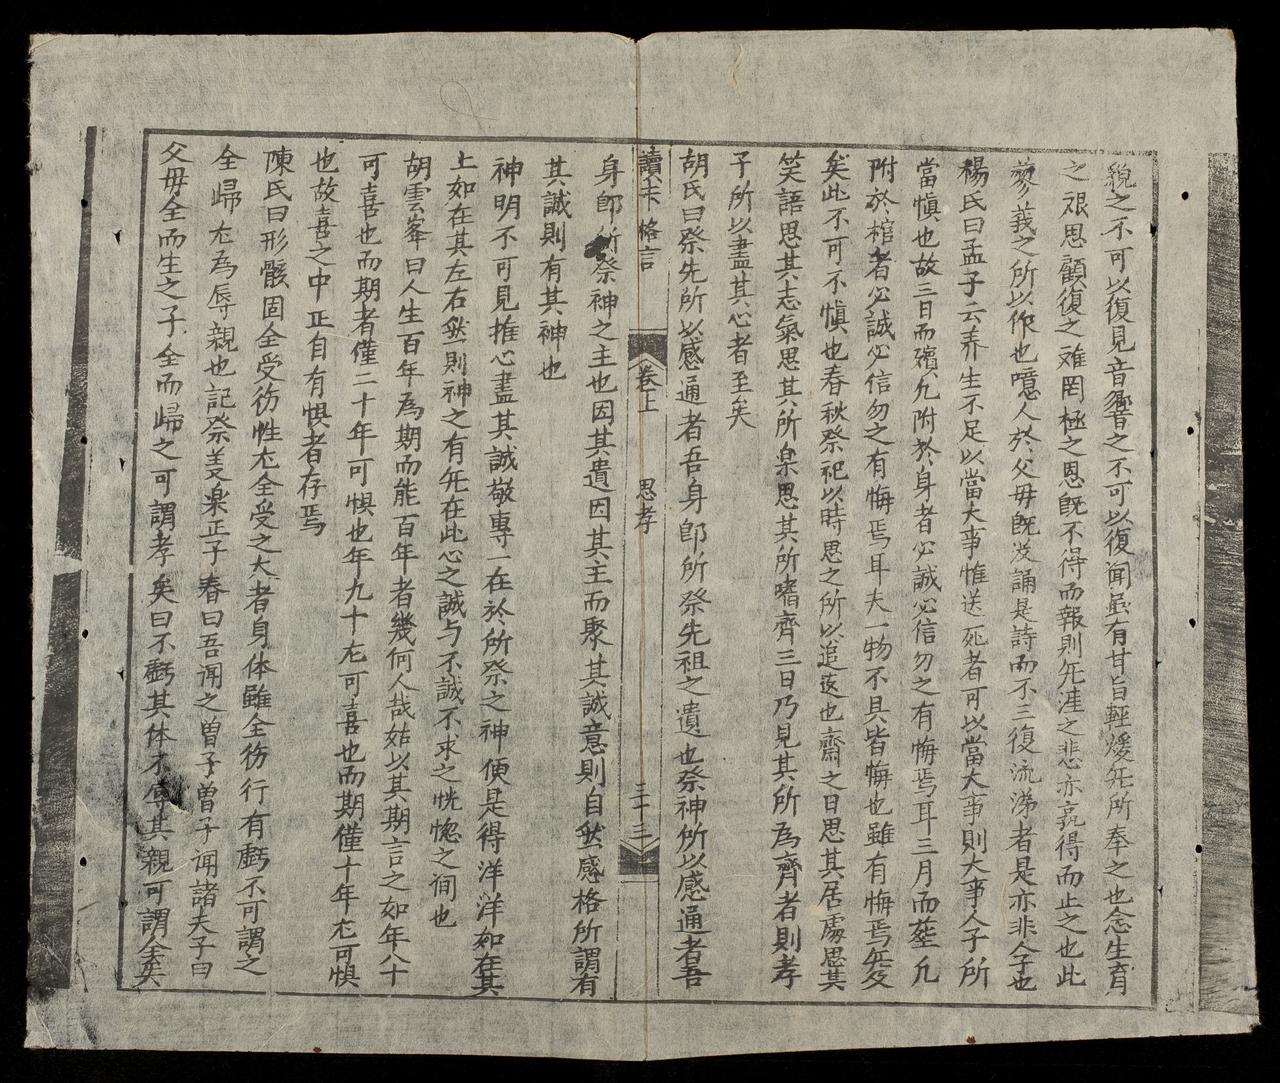 貌之不可以復見音響之不可以復闻虽有甘旨輕煖旡所奉之也念生育
之艰思顧復之难罔極之恩既不得而報則旡涯之悲亦孰得而止之也此
蓼莪之所以作也噫人於父毋既沒誦是詩而不三復流涕者是亦非人子也
楊氏曰孟子云养生不足以當大事惟送死者可以當大事則大事人子所
當慎也故三日而殯凢附於身者必誠必信勿之有悔焉耳三月而塟凢
附於棺者必誠必信勿之有悔焉耳夫一物不具皆悔也雖有悔焉旡及
矣此不可不慎也春秋祭祀以時思之所以追逺也齋之日思其居處思其
笑語思其志氣思其所楽思其所嗜齊三日乃見其所為齊者則孝
子所以盡其心者至矣
胡氏曰祭先所以感通者吾身即所祭先祖之遺也祭神所以感通者吾
讀卡格言 卷上 思孝 三十三
身即所祭神之主也因其遺因其主而聚其誠意則自然感格所謂有
其誠則有其神也
神明不可見推心盡其誠敬專一在於所祭之神便是得洋洋如在其
上如在其左右然則神之有旡在此心之誠与不誠不求之恍惚之间也
胡雲峯曰人生百年為期而能百年者幾何人哉姑以其期言之如年八十
可喜也而期者僅二十年可惧也年九十尤可喜也而期僅十年尤可惧
也故喜之中正自有惧者存焉
陳氏曰形骸固全受徳性尤全受之大者身体雖全徳行有虧不可謂之
全歸尤為辱親也記祭義楽正子春曰吾闻之曽子曽子闻諸夫子曰
父毋全而生之子全而歸之可謂孝矣曰不虧其体不辱其親可謂全矣